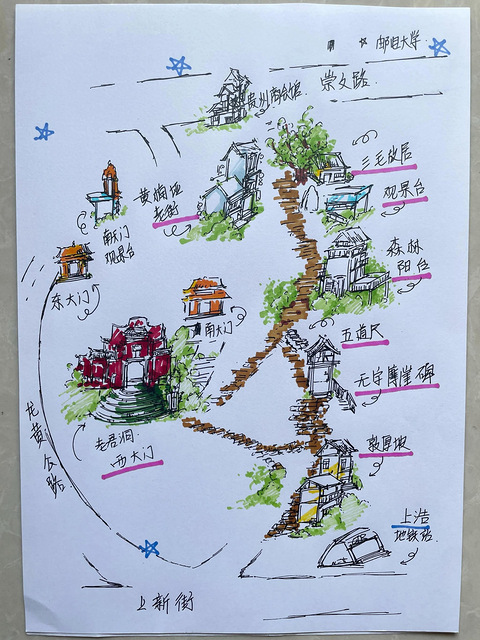 邮电大学
崇文路
贵州商会馆
三毛故居
黄桷垭
老街
观景台
南大门
观景台
森林
阳台
东大门
南大门
五道尺
无字摩崖碑
龙黄公路
老君洞
西大门
敦厚坡
上浩
地铁站
上新街